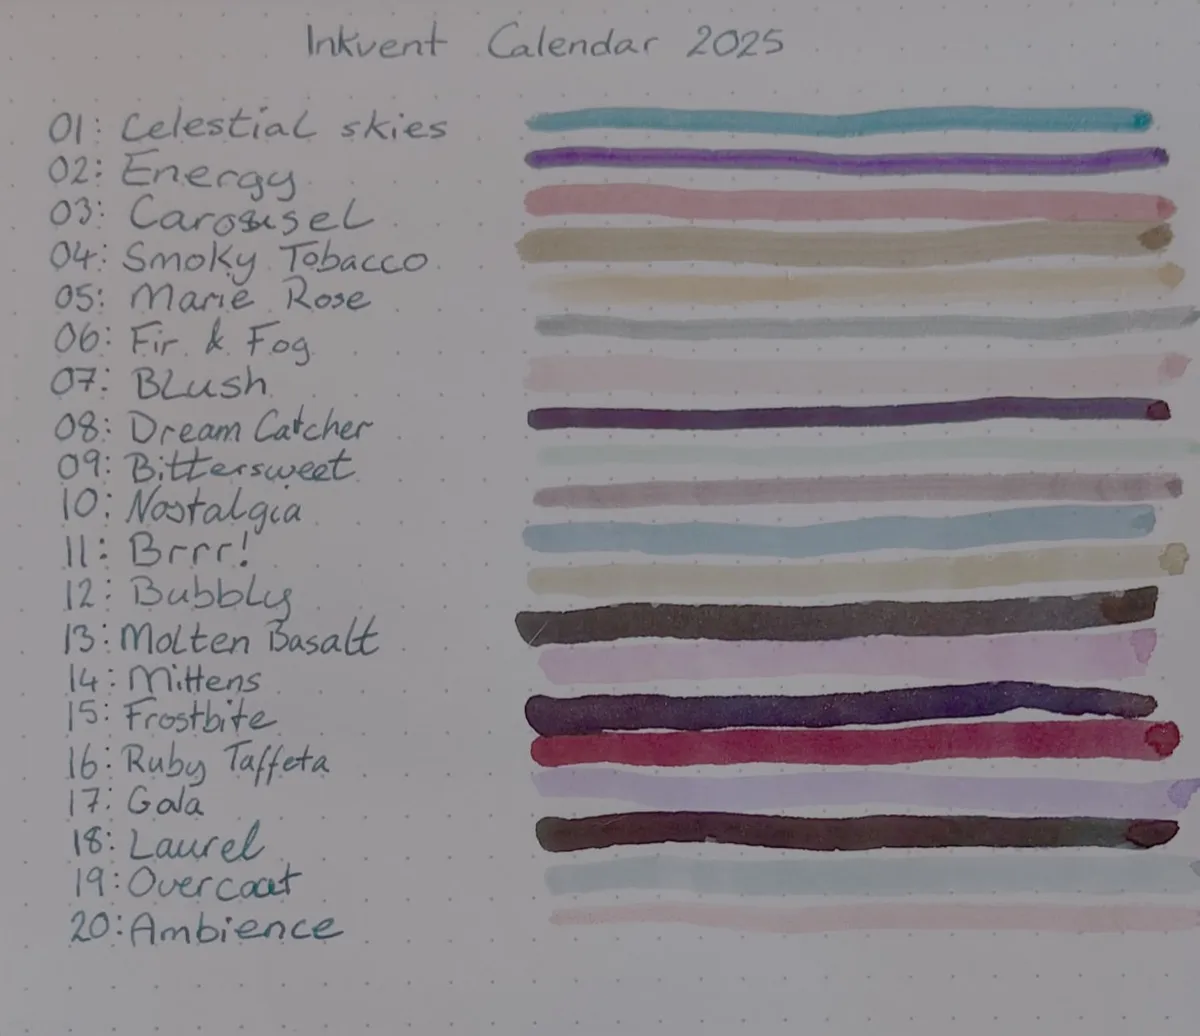 Inkvent Calendar 2025
01: Celestial skies
02: Energy
03: Carousel
04: Smoky Tobacco
05: Marie Rose
06: Fir & Fog
07: Blush
08: Dream Catcher
09: Bittersweet
10: Nostalgia
11: Brrr!
12: Bubbly
13: Molten Basalt
14: Mittens
15: Frostbite
16: Ruby Taffeta
17: Gala
18: Laurel
19: Overcoat
20: Ambience